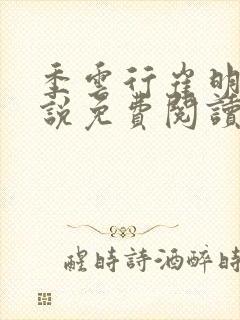 季雲行崔明
說免費閱讀
醒時詩酒醉時